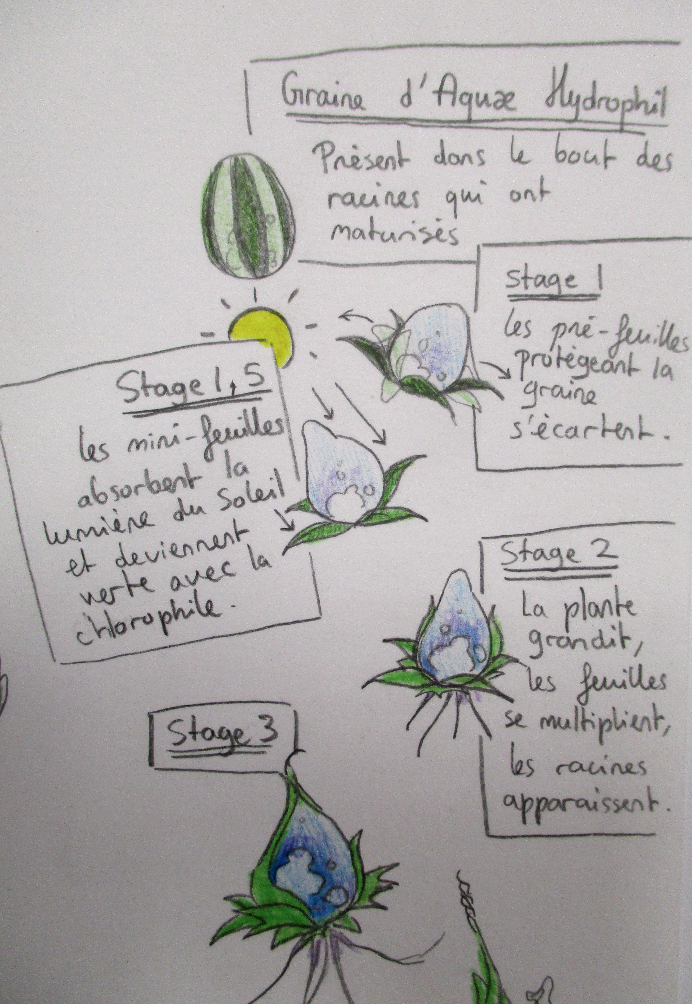 Graine d'Aquæ Hydrophil
Présent dans le bout des
racines qui ont
maturisés
Stage 1
Les pré-feuilles
protégeant la
graine
s'écartent.
Stage 1,5
Les mini-feuilles
absorbent la
lumière du Soleil
et deviennent
verte avec la
chlorophile.
Stage 2
La plante
grandit,
les feuilles
se multiplient,
les racines
apparaissent.
Stage 3